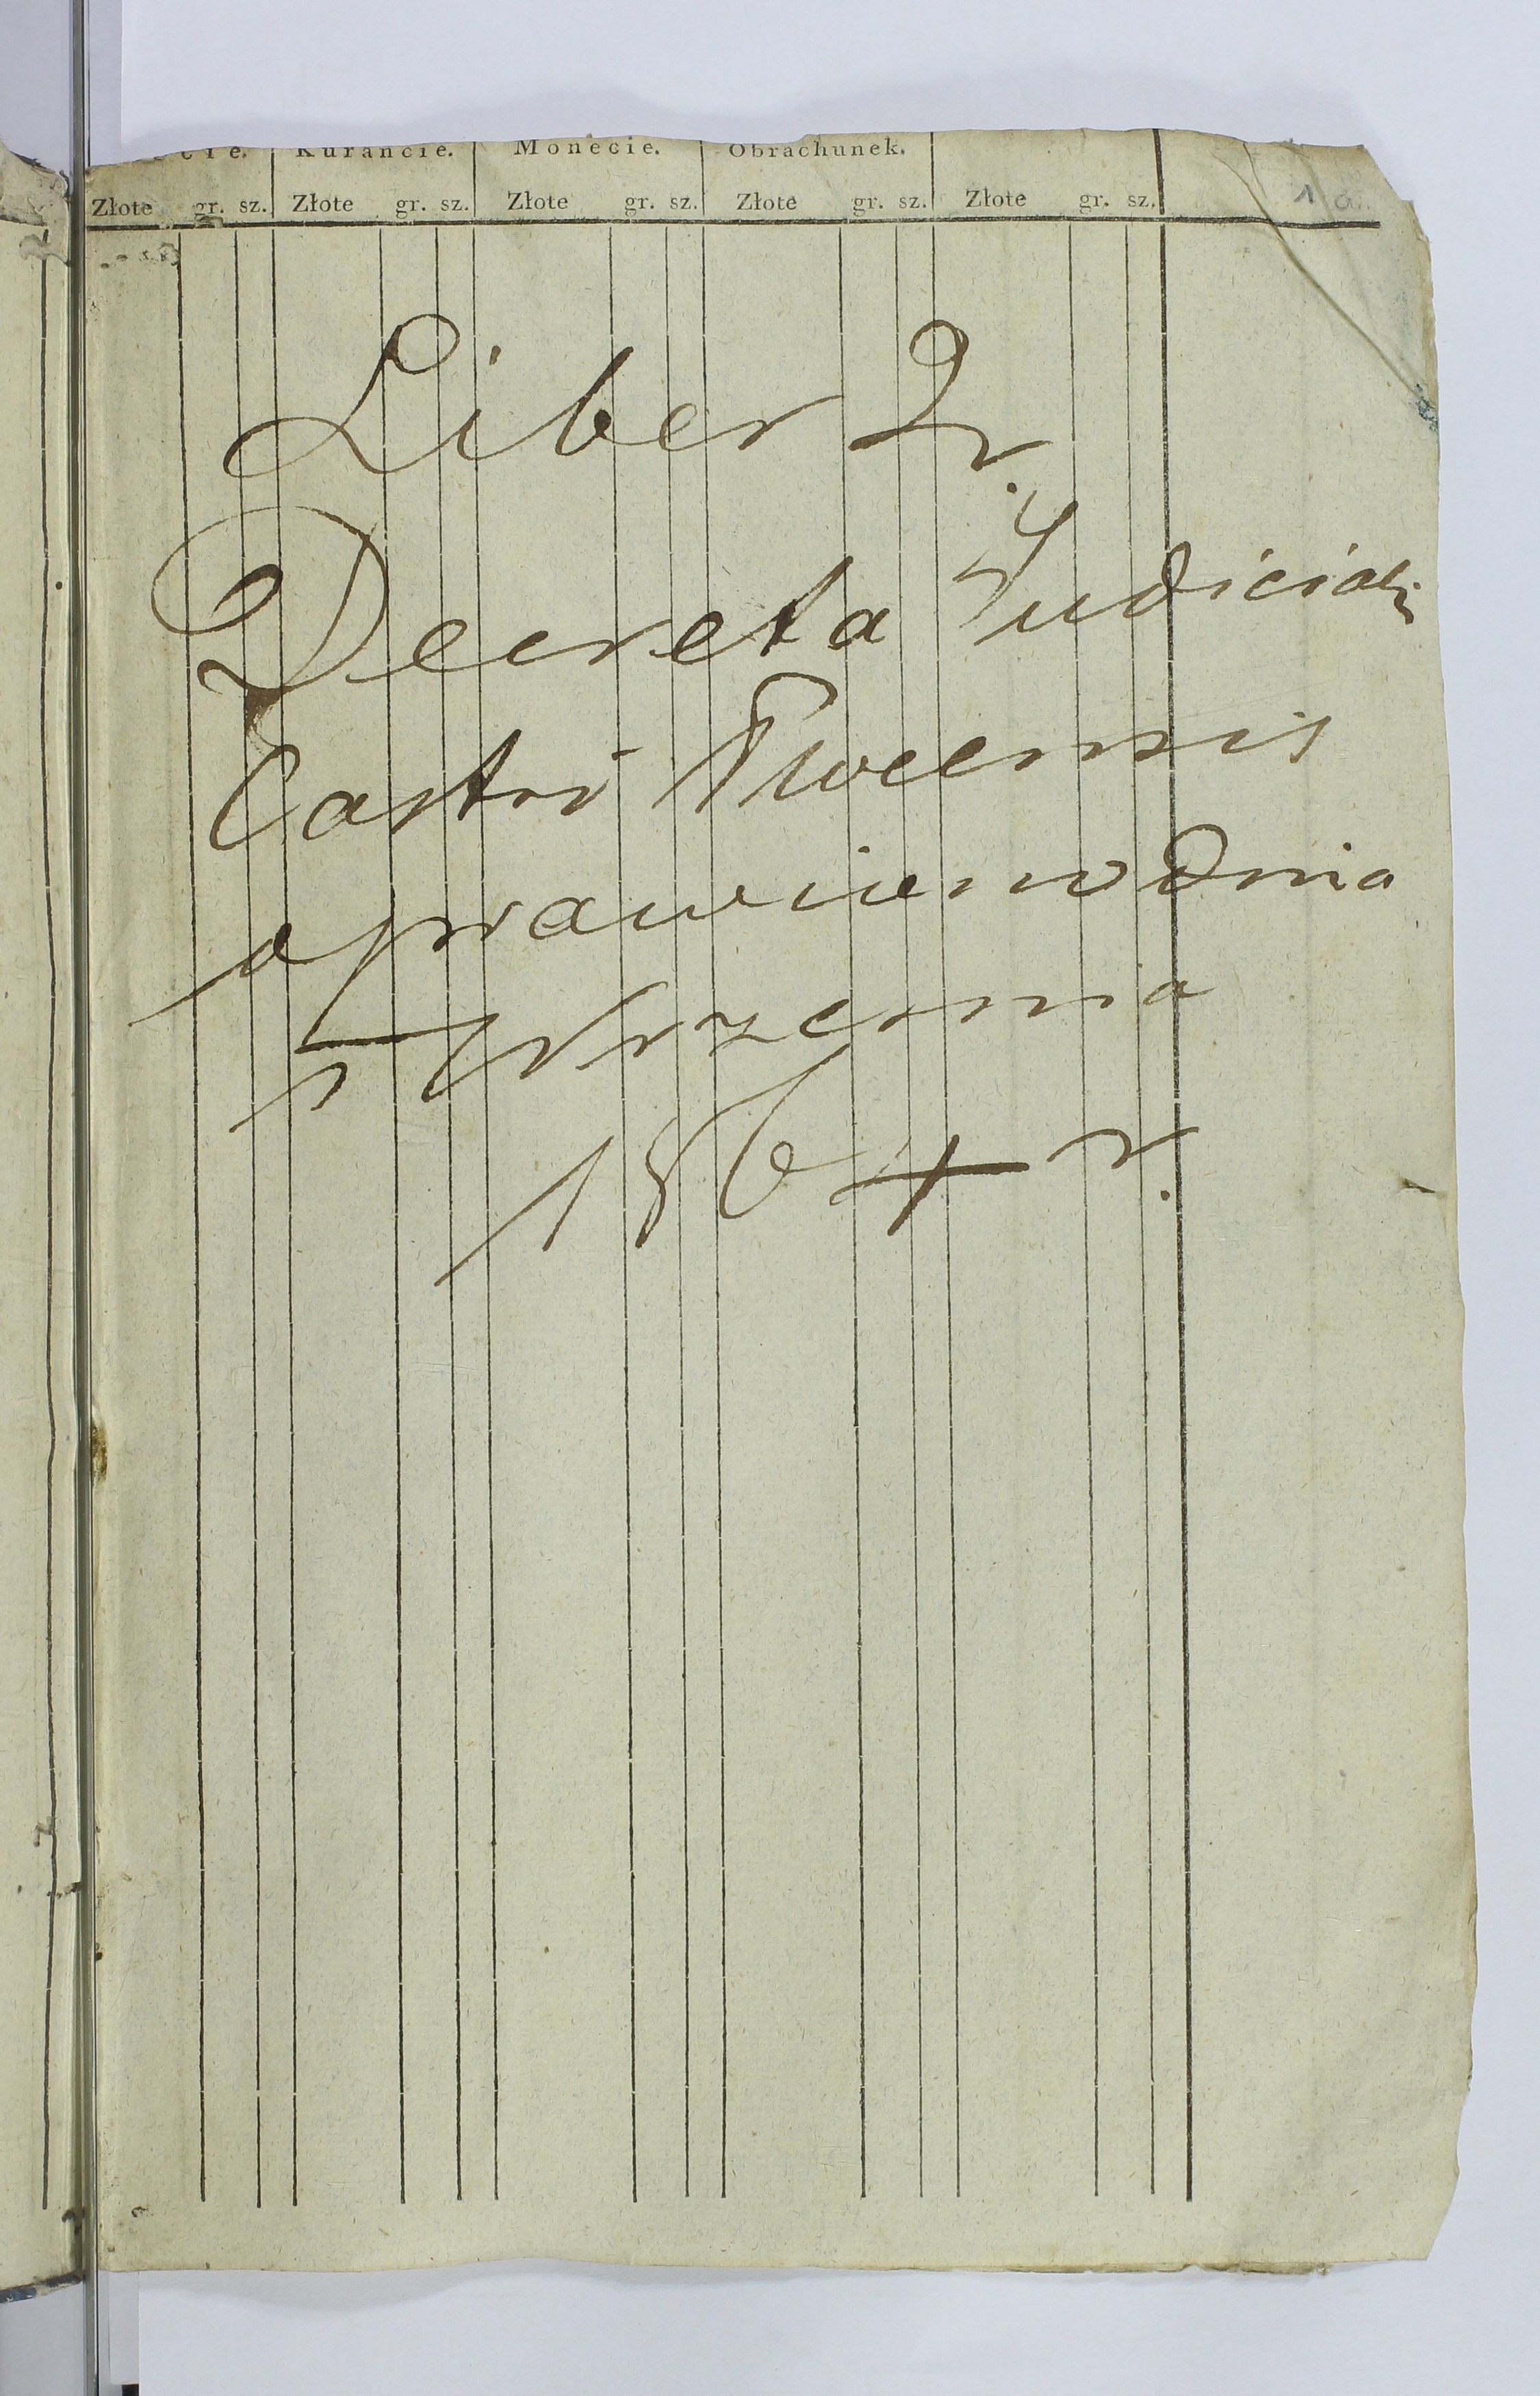 cie. Kurancie. Monecie. Obrachunek.
Złote gr. sz. Złote gr. sz. Złote gr. sz. Złote gr. sz. Złote gr. sz. 1 a.
Liber 2.
Decreta Judicialia
Castri
oprawiono dnia
5 Września
1864 r.